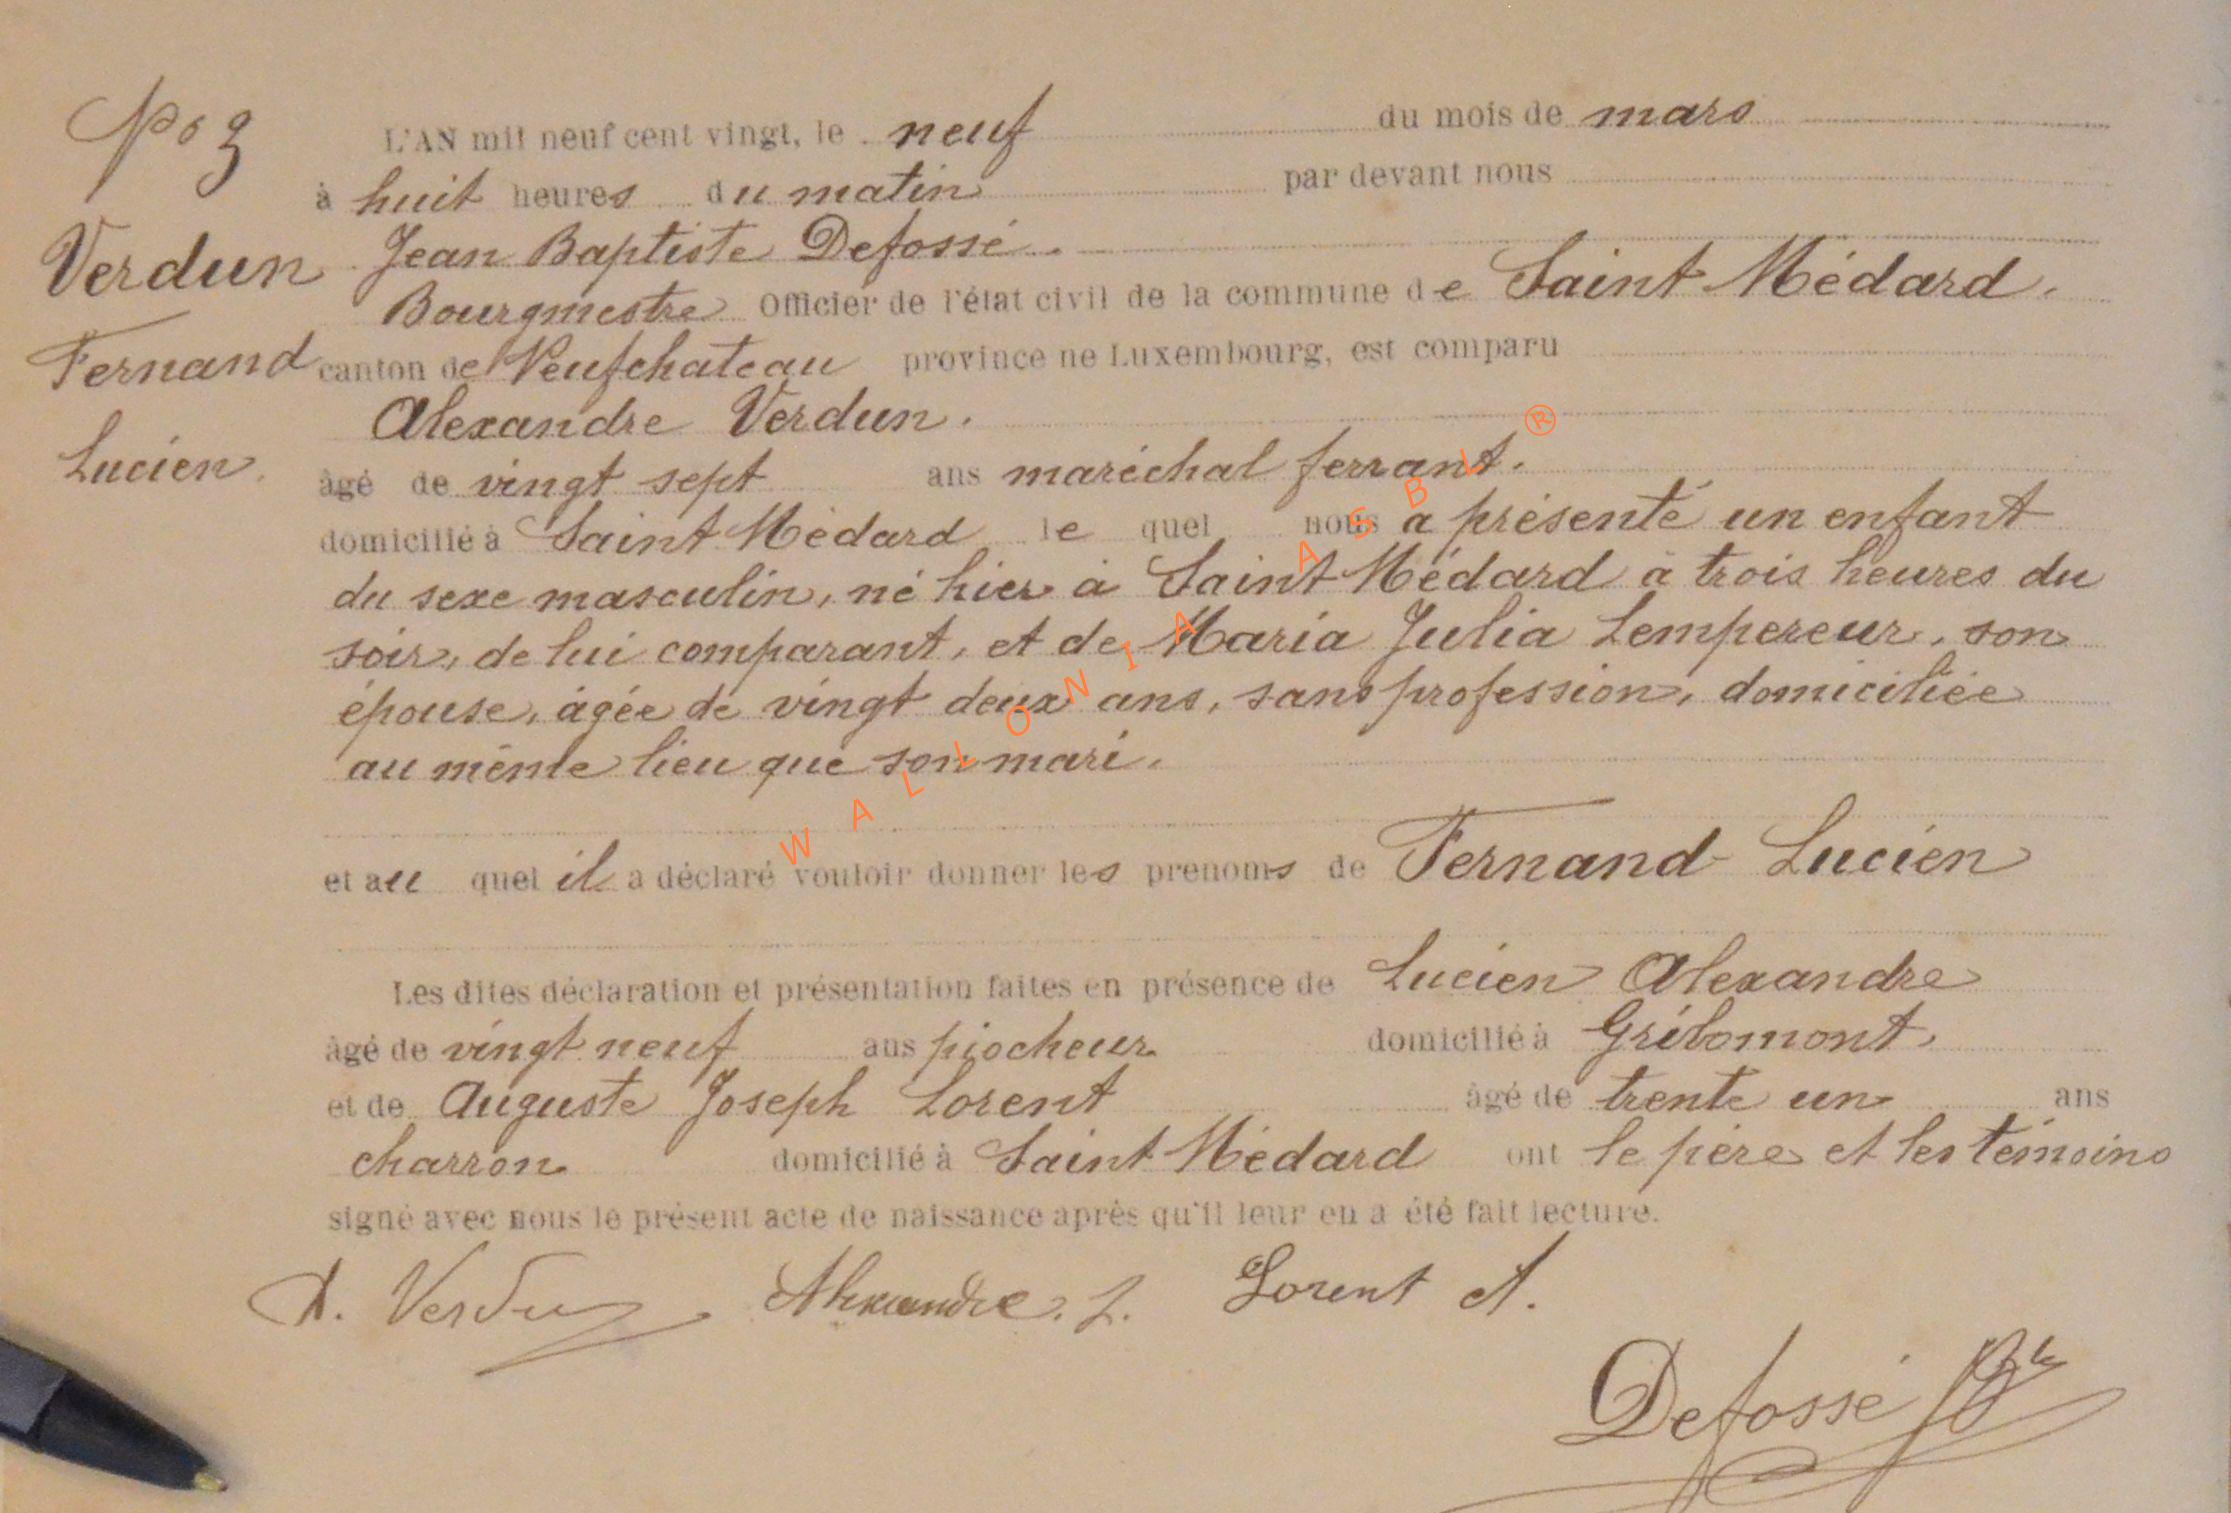 No 3
Verdun
Fernand
Lucien.
L'AN mil neuf cent vingt, le neuf du mois de mars
à huit heures du matin par devant nous
Jean Baptiste Defossé.
Bourgmestre Officier de l'état civil de la commune de Saint Médard.
canton de Neufchateau province ne Luxembourg, est comparu
Alexandre Verdun.
âgé de vingt sept ans maréchal ferrant.
domicilié à Saint Médard le quel nous a présenté un enfant
du sexe masculin, né hier à Saint Médard à trois heures du
soir, de lui comparant, et de Maria Julia Lempereur, son
épouse, âgée de vingt deux ans, sans profession, domiciliée
au même lieu que son mari.
et au quel il a déclaré vouloir donner les prenoms de Fernand Lucien
Les dites déclaration et présentation faites en présence de Lucien Alexandre
âgé de vingt neuf ans piocheur domicilié à Gribomont,
et de Auguste Joseph Lorent âgé de trente un ans
charron domicilié à Saint Médard ont le père et les témoins
signé avec nous le présent acte de naissance après qu'il leur en a été fait lecture.
A. Verdun Alexandre. L. Lorent A.
Defossé JB
WALLONIA ASBL ®